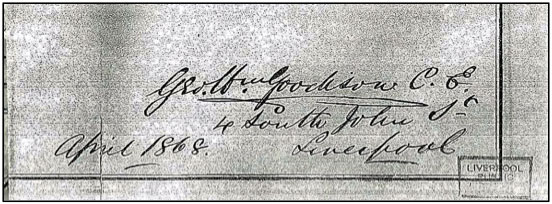 Geo. Wm. Goodison C. E.
4 South John St
Liverpool
April 1868.
LIVERPOOL